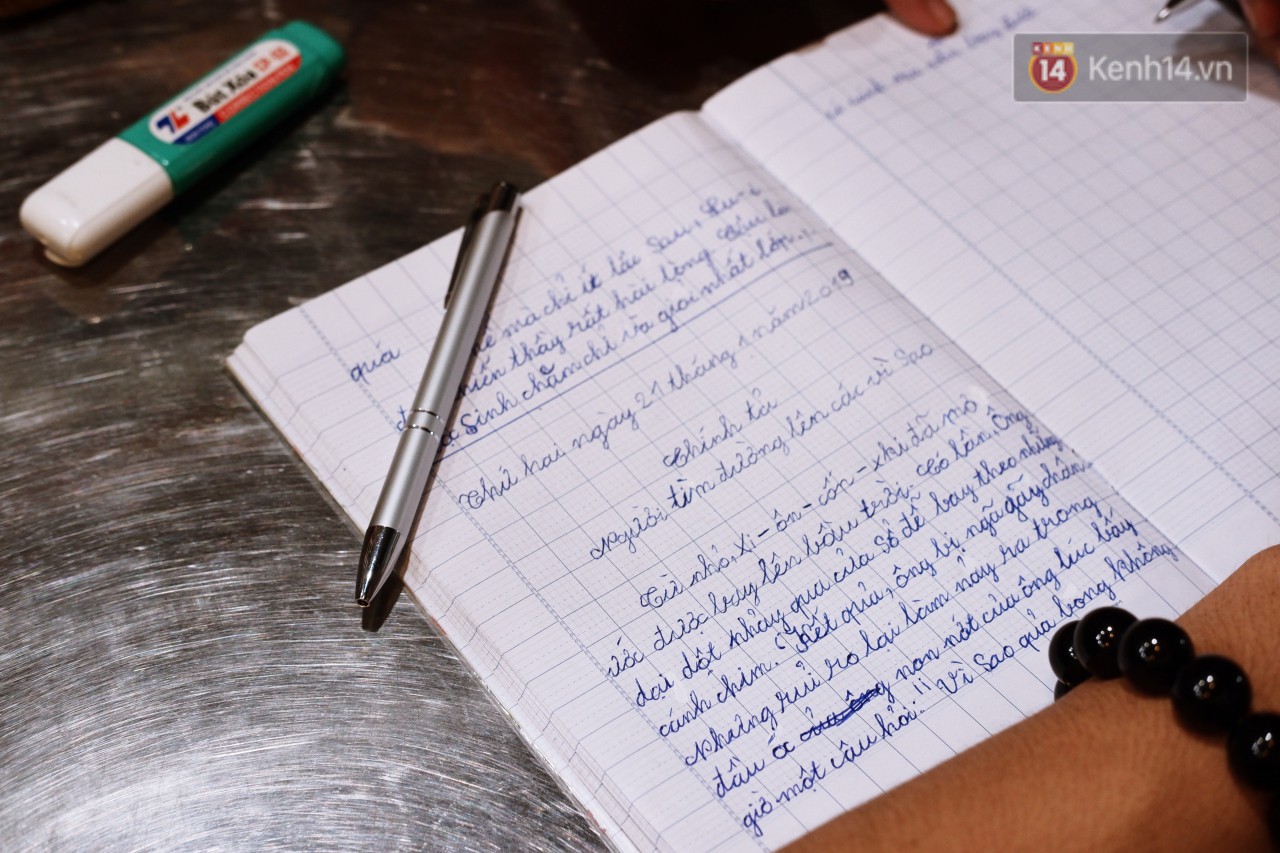 Bút Xóa CP-02
KINH 14
Kenh14.vn
quá mà chỉ ít lâu sau,
khiến thầy rất hài lòng. Cậu là
Sinh chăm chỉ và giỏi nhất lớp.
Thứ hai ngày 21 tháng 1 năm 2019
Chính tả
Người tìm đường lên các vì Sao
Từ nhỏ, Xi-ôn-cốp-xki đã mơ
ước được bay lên bầu trời. Có lần, Ông
dại dột nhảy qua cửa sổ để bay theo những
cánh chim. Kết quả, ông bị ngã gãy chân.
Nhưng rủi ro lại làm nảy ra trong
đầu óc non nớt của ông lúc bấy
giờ một câu hỏi: "Vì Sao quả bóng không